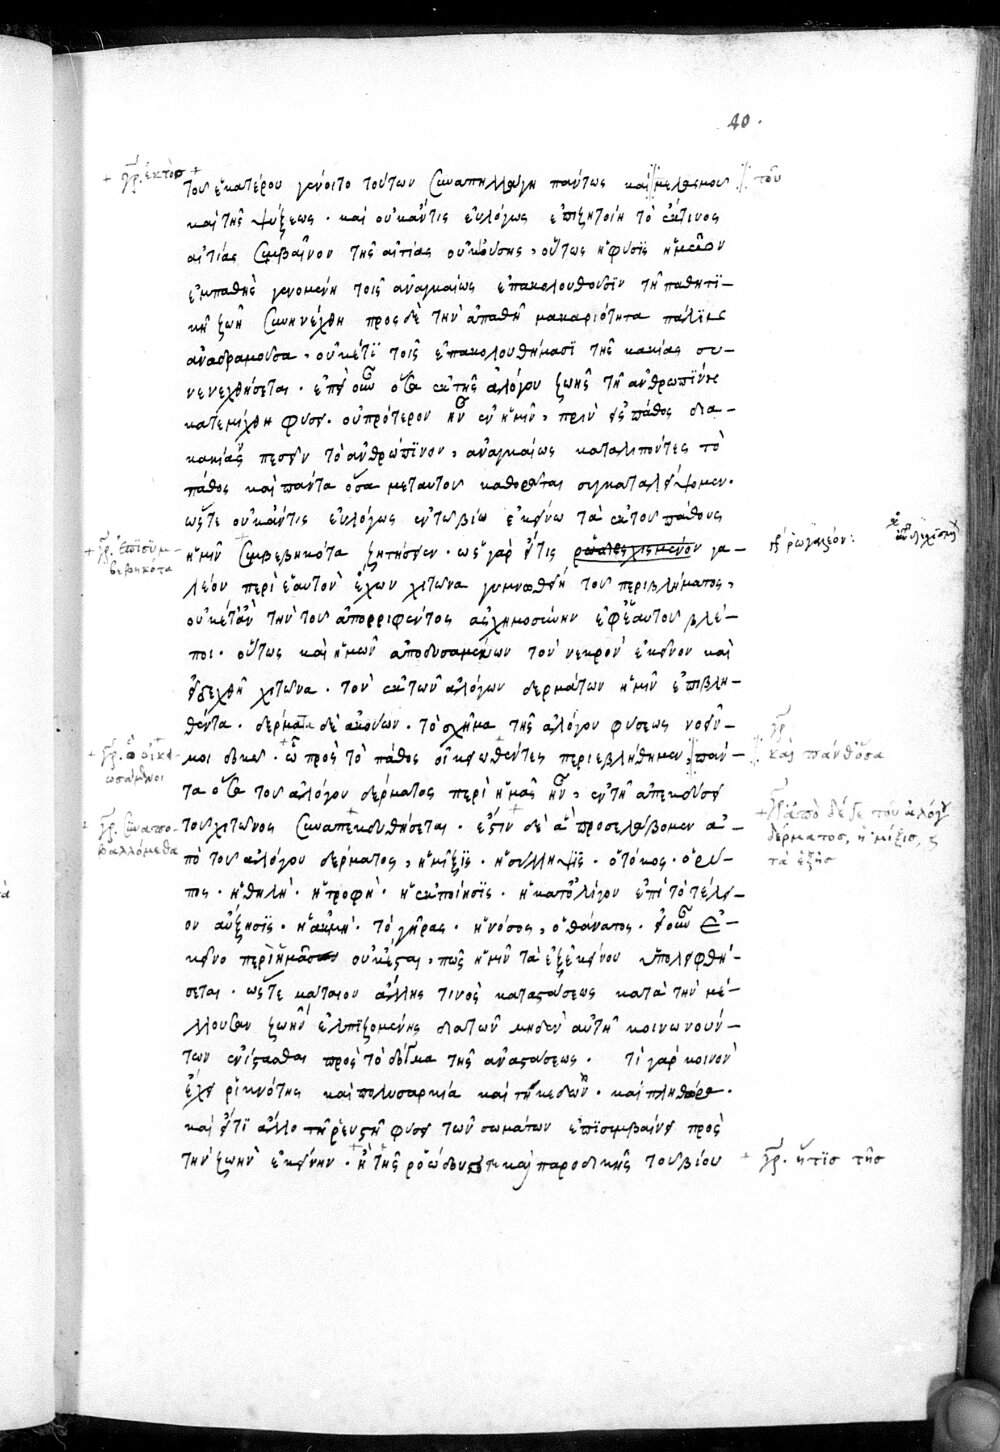 40.
+ γρ. ἐκτὸσ +
τοῦ ἑκατέρου γένοιτο τούτων συναπηλλάγη πάντως καὶ μελθεμοῦ
·/. τοῦ
καὶ τῆς ψύξεως · καὶ οὐκ ἄν τις εὐλόγως ἐπιζητοίη τὸ ἔκ τινος
αἰτίας συμβαῖνον τῆς αἰτίας οὐκ οὔσης, οὕτως ἡ φύσις ἡμῶν
ἐμπαθὴς γενομένη τοῖς ἀναγκαίως ἐπακολουθοῦσιν τῇ παθητι-
κῇ ζωῇ συνηνέχθη πρὸς δὲ τὴν ἀπαθῆ μακαριότητα πάλιν
ἀναδραμοῦσα, οὐκέτι τοῖς ἐπακολουθήμασι τῆς κακίας συ-
νενεχθήσεται · ἐπεὶ οὖν ὅσα ἐκ τῆς ἀλόγου ζωῆς τῇ ἀνθρωπίνῃ
κατεμίχθη φύσει · οὐ πρότερον ἦν ἐν ἡμῖν, πρὶν εἰς πάθος δια-
κακίας πεσεῖν τὸ ἀνθρώπινον, ἀναγκαίως καταλιπόντες τὸ
πάθος καὶ πάντα ὅσα μετ αὐτοῦ καθορᾶται συγκαταλείψομεν ·
ὥστε οὐκ ἄν τις εὐλόγως ἐν τῷ βίῳ ἐκείνῳ τὰ ἐκ τοῦ πάθους
+ γρ. ἐπισυμ-
βεβηκότα
ἡμῖν συμβεβηκότα ζητήσειεν · ὡς γάρ εἴ τις γα-
ῥωγαλέον:
λέον περὶ ἑαυτὸν ἔχων χιτῶνα γυμνωθείη τοῦ περιβλήματος,
οὐκέτ ἂν τὴν τοῦ ἀπορριφέντος ἀσχημοσύνην ἐφ ἑαυτοῦ βλέ-
ποι · οὕτως καὶ ἡμῶν ἀποδυσαμένων τὸν νεκρὸν ἐκεῖνον καὶ
εἰδεχθῆ χιτῶνα · τὸν ἐκ τῶν ἀλόγων δερμάτων ἡμῖν ἐπιβλη-
θέντα · δέρματα δὲ ἀκούων · τὸ σχῆμα τῆς ἀλόγου φύσεως νοεῖν
+ γρ. ᾧ οἰκει-
ωσάμενοι
μοι δοκεῖ · ᾧ πρὸς τὸ πάθος οἰκειωθέντες περιεβλήθημεν, πάν-
γρ.
καὶ πανθ ὅσα
τα ὅσα τοῦ ἀλόγου δέρματος περὶ ἡμᾶς ἦν, ἐν τῇ ἀπεκδύσει
+ γρ. συναπο-
βαλλόμεθα
τοῦ χιτῶνος συναπεκδυθήσεται · ἔστιν δὲ ἃ προσελάβομεν ἀ-
+ γρ ἀπὸ δέ γε τοῦ ἀλόγου
δέρματοσ, ἡ μίξισ, ϛ
τὰ ἑξῆσ
πὸ τοῦ ἀλόγου δέρματος, ἡ μίξις · ἡ σύλληψις · ὁ τόκος · ὁ ρύ-
πος · ἡ θηλή · ἡ τροφή · ἡ ἐκποίησις · ἡ κατ ὀλίγον ἐπὶ τὸ τέλει-
ον αὔξησις · ἡ ἀκμή · τὸ γῆρας · ἡ νόσος, ὁ θάνατος · εἰ οὖν ἐ-
κεῖνο περὶ ἡμᾶς οὐκ ἔσται, πῶς ἡμῖν τὰ ἐξ ἐκείνου ὑπολειφθή-
σεται · ὥστε μάταιον ἄλλης τινὸς καταστάσεως κατὰ τὴν μέ-
λλουσαν ζωὴν ἐλπιζομένης διὰ τῶν μηδὲν αὐτῇ κοινωνούν-
των ἐνίστασθαι πρὸς τὸ δόγμα τῆς ἀναστάσεως · τί γάρ κοινὸν
ἔχει ῥικνότης καὶ πολυσαρκία καὶ τηκεδὼν · καὶ πληθώρα ·
καὶ εἴ τι ἄλλο τῇ ῥευστῇ φύσει τῶν σωμάτων ἐπισυμβαίνει πρὸς
τὴν ζωὴν ἐκείνην · ἢ τῆς ῥοώδους τε καὶ παροδικῆς τοῦ βίου
+ γρ. ἥτισ τῆσ